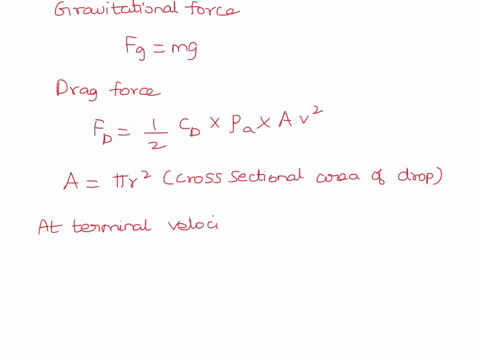 Gravitational force
Fg = mg
Drag force
F_D = 1/2 C_D × ρ_a × A v²
A = πr² (cross sectional area of drop)
At terminal veloci